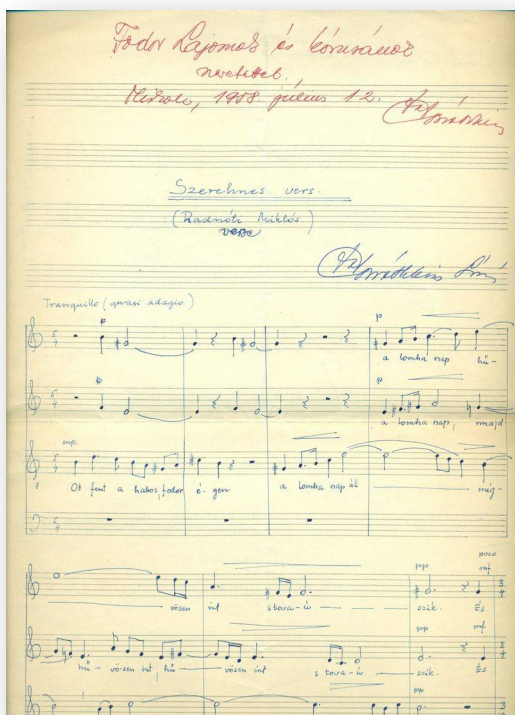 Fodor Lajosnak és kórusának
szeretettel.
Miskolc, 1958. július 12.
Szerelmes vers.
(Radnóti Miklós)
verse
Tranquillo (quasi adagio)
p
p
a lomha nap hű-
p
p
a lomha nap, majd
mp.
Ott fent a habos, fodor é-gen a lomha nap áll még-
pp poco mf
vösen int stova-ú szik. És
pp mf
hű- vö-sen int, hű vösen int stova-ú szik. És
p p pp